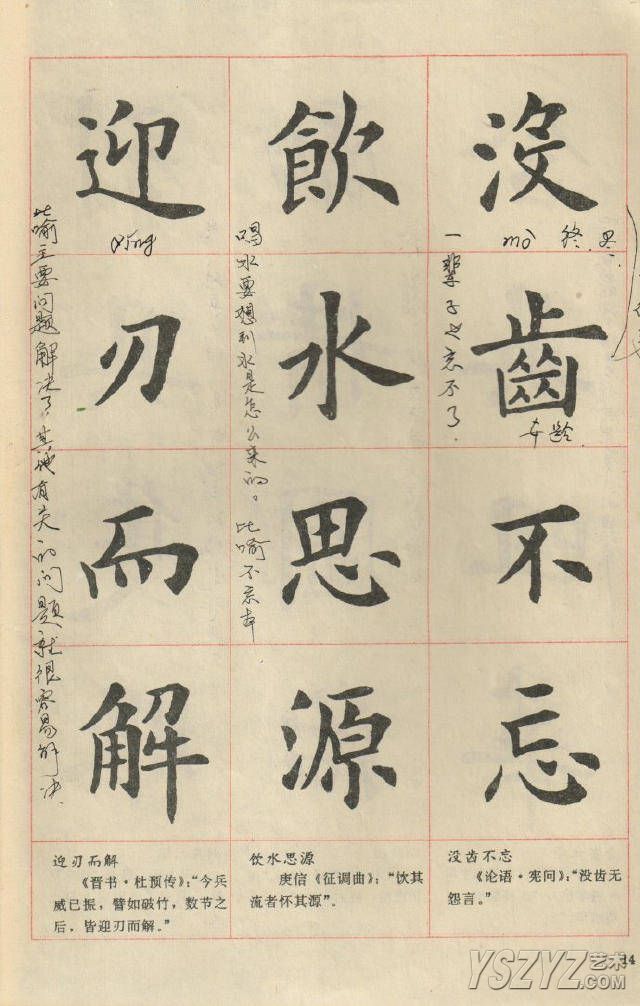 没齿不忘
mò 终.
一辈子也忘不了.
年龄
飲水思源
喝水要想到水是怎么来的。比喻不忘本
迎刃而解
yíng
比喻主要问题解决了.其他有关的问题就很容易解决.
没齿不忘
《论语·宪问》:“没齿无
怨言。”
饮水思源
庾信《征调曲》:“饮其
流者怀其源”.
迎刃而解
《晋书·杜预传》:“今兵
威已振,譬如破竹,数节之
后,皆迎刃而解。”
14
YSZYZ艺术